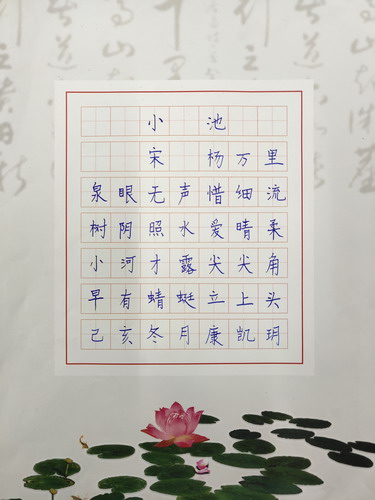 小池
宋 杨万里
泉眼无声惜细流
树阴照水爱晴柔
小河才露尖尖角
早有蜻蜓立上头
己亥冬月康凯玥